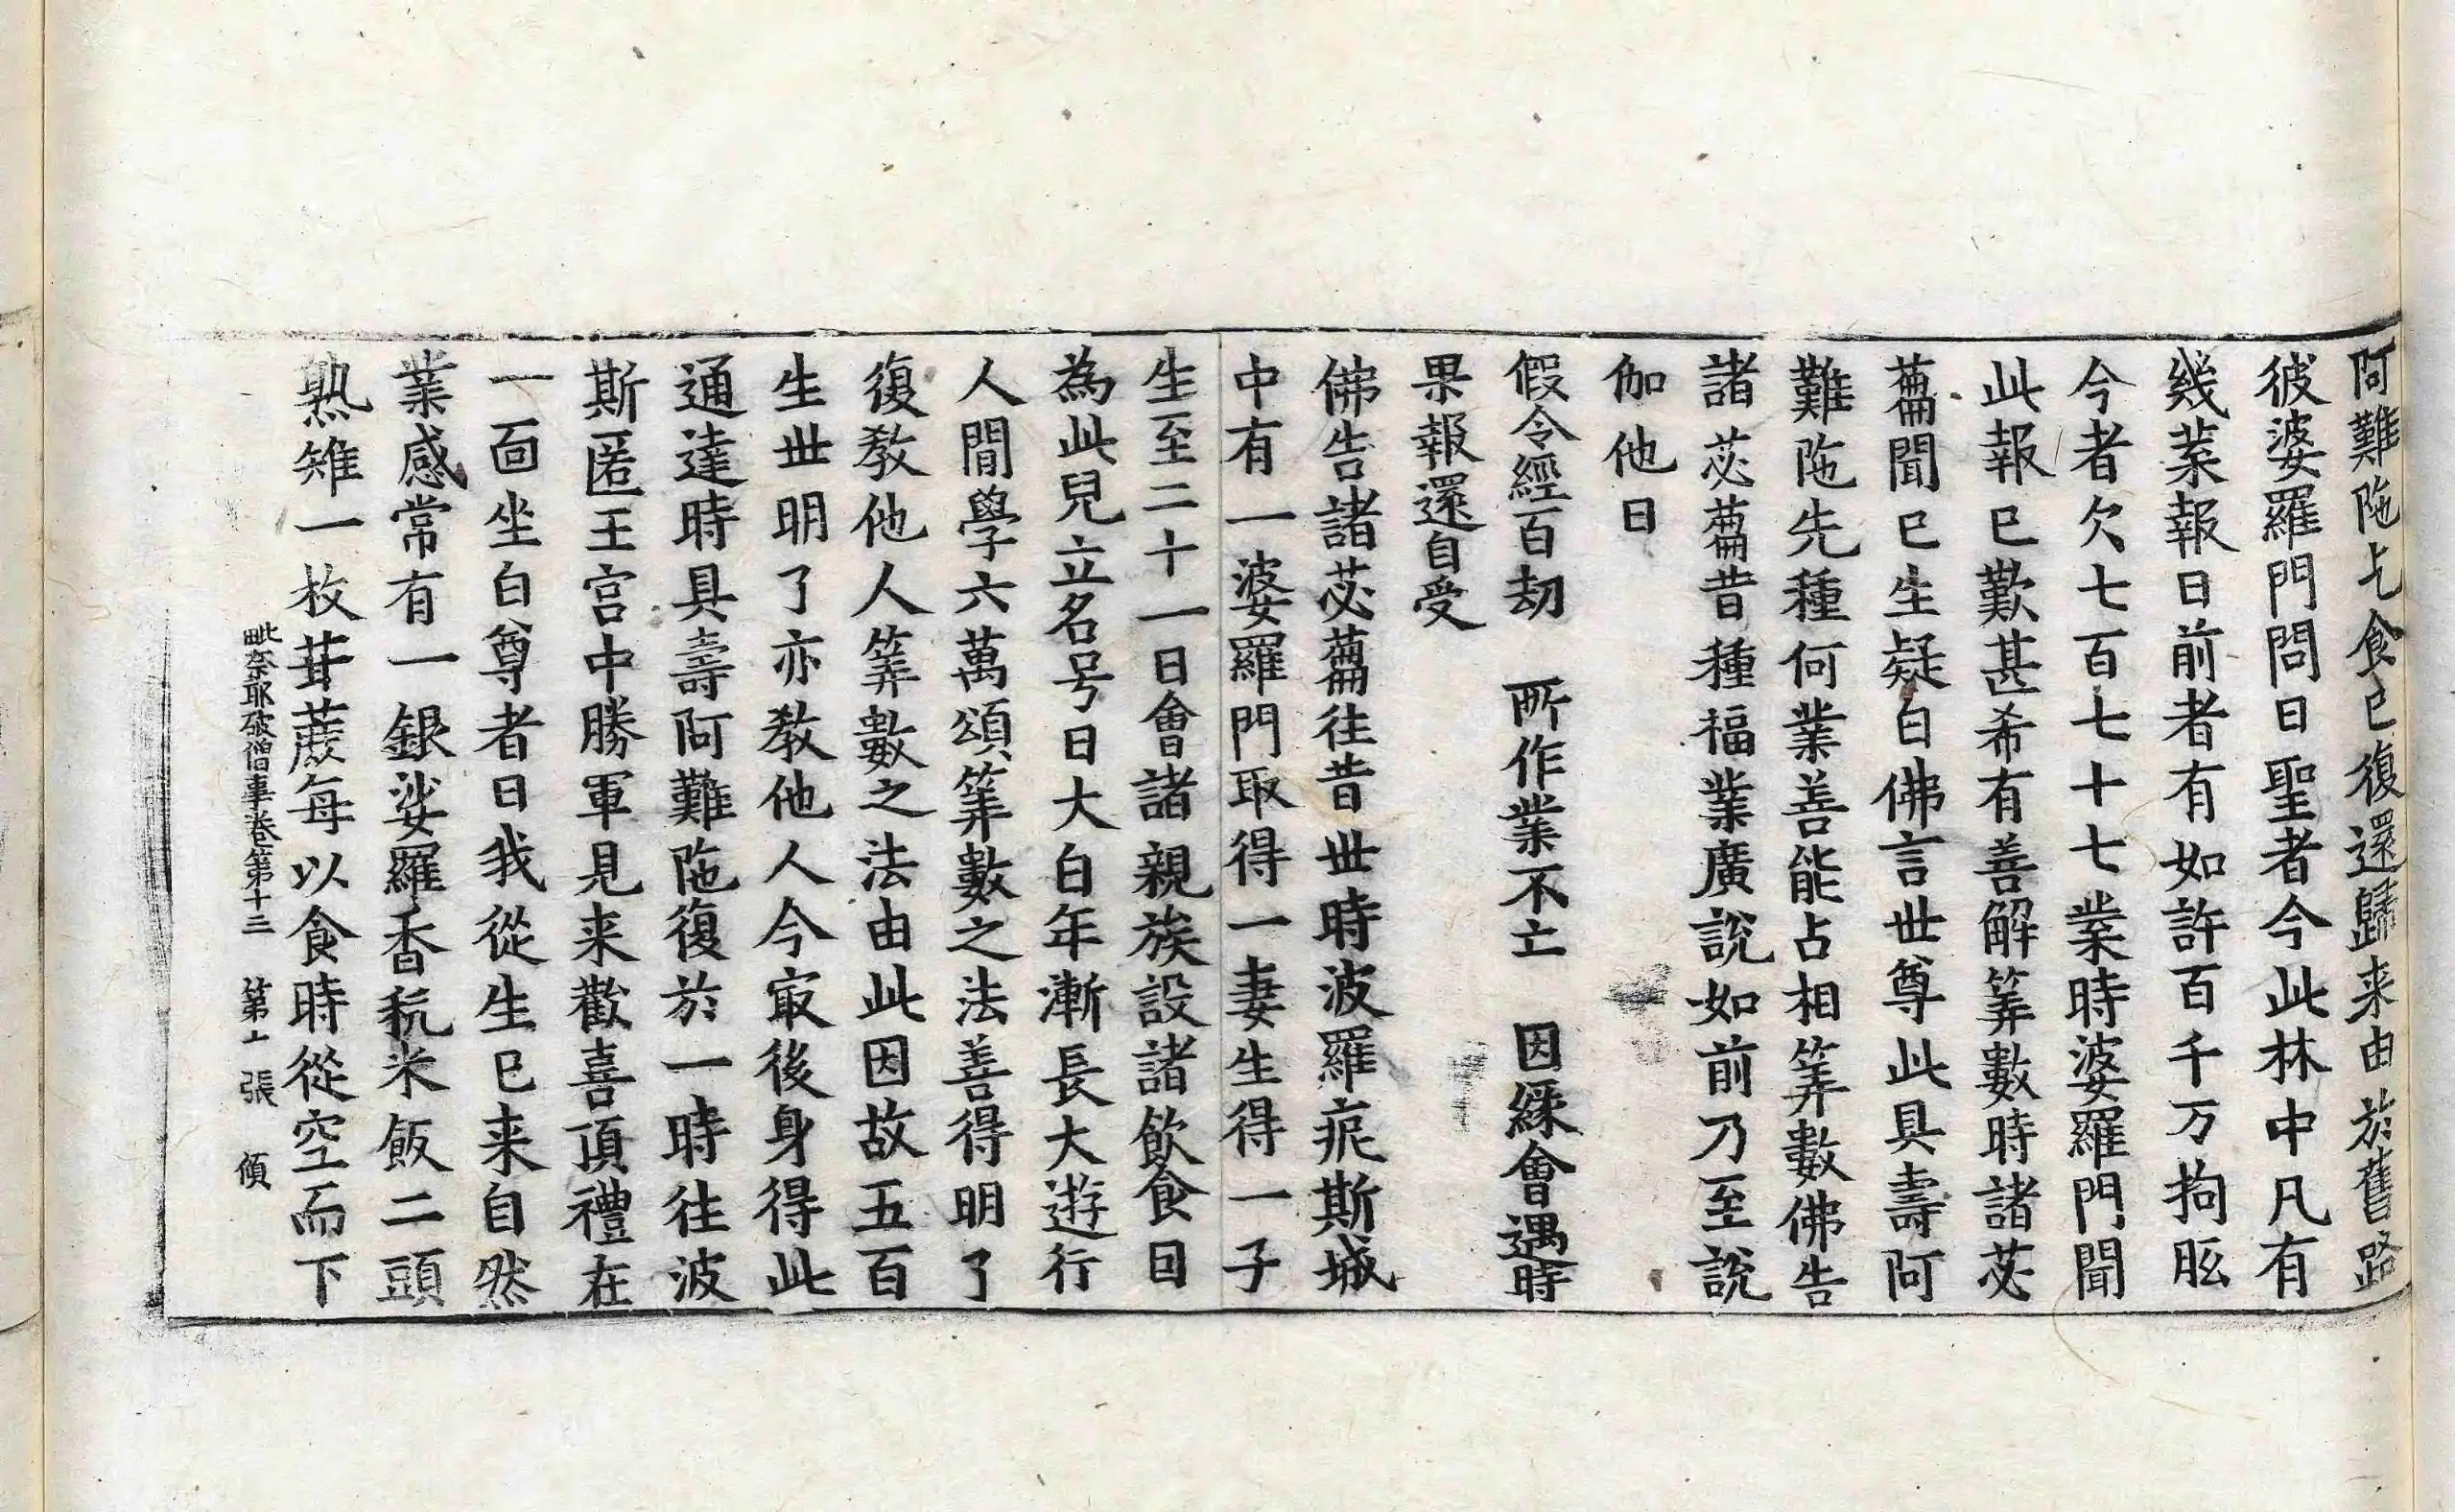 阿難陁乞食已復還歸来由於舊路
彼婆羅門問曰聖者今此林中凡有
幾葉報曰前者有如許百千万拘胝
今者欠七百七十七葉時婆羅門聞
此報已歎甚希有善解筭數時諸苾
蒭聞已生疑白佛言世尊此具壽阿
難陁先種何業善能占相筭數佛告
諸苾蒭昔種福業廣說如前乃至說
伽他曰
假令經百劫　所作業不亡　因緣會遇時
果報還自受
佛告諸苾蒭往昔世時波羅痆斯城
中有一婆羅門取得一妻生得一子
生至二十一日會諸親族設諸飲食目
為此兒立名号曰大白年漸長大遊行
人間學六萬頌筭數之法善得明了
復教他人筭數之法由此因故五百
生世明了亦教他人今㝡後身得此
通達時具壽阿難陁復於一時往波
斯匿王宮中勝軍見来歡喜頂禮在
一面坐白尊者曰我從生已来自然
業感常有一銀娑羅香秔米飯二頭
熟雉一枚甘蔗每以食時從空而下
毗奈耶破僧事卷第十三　第十張　傾